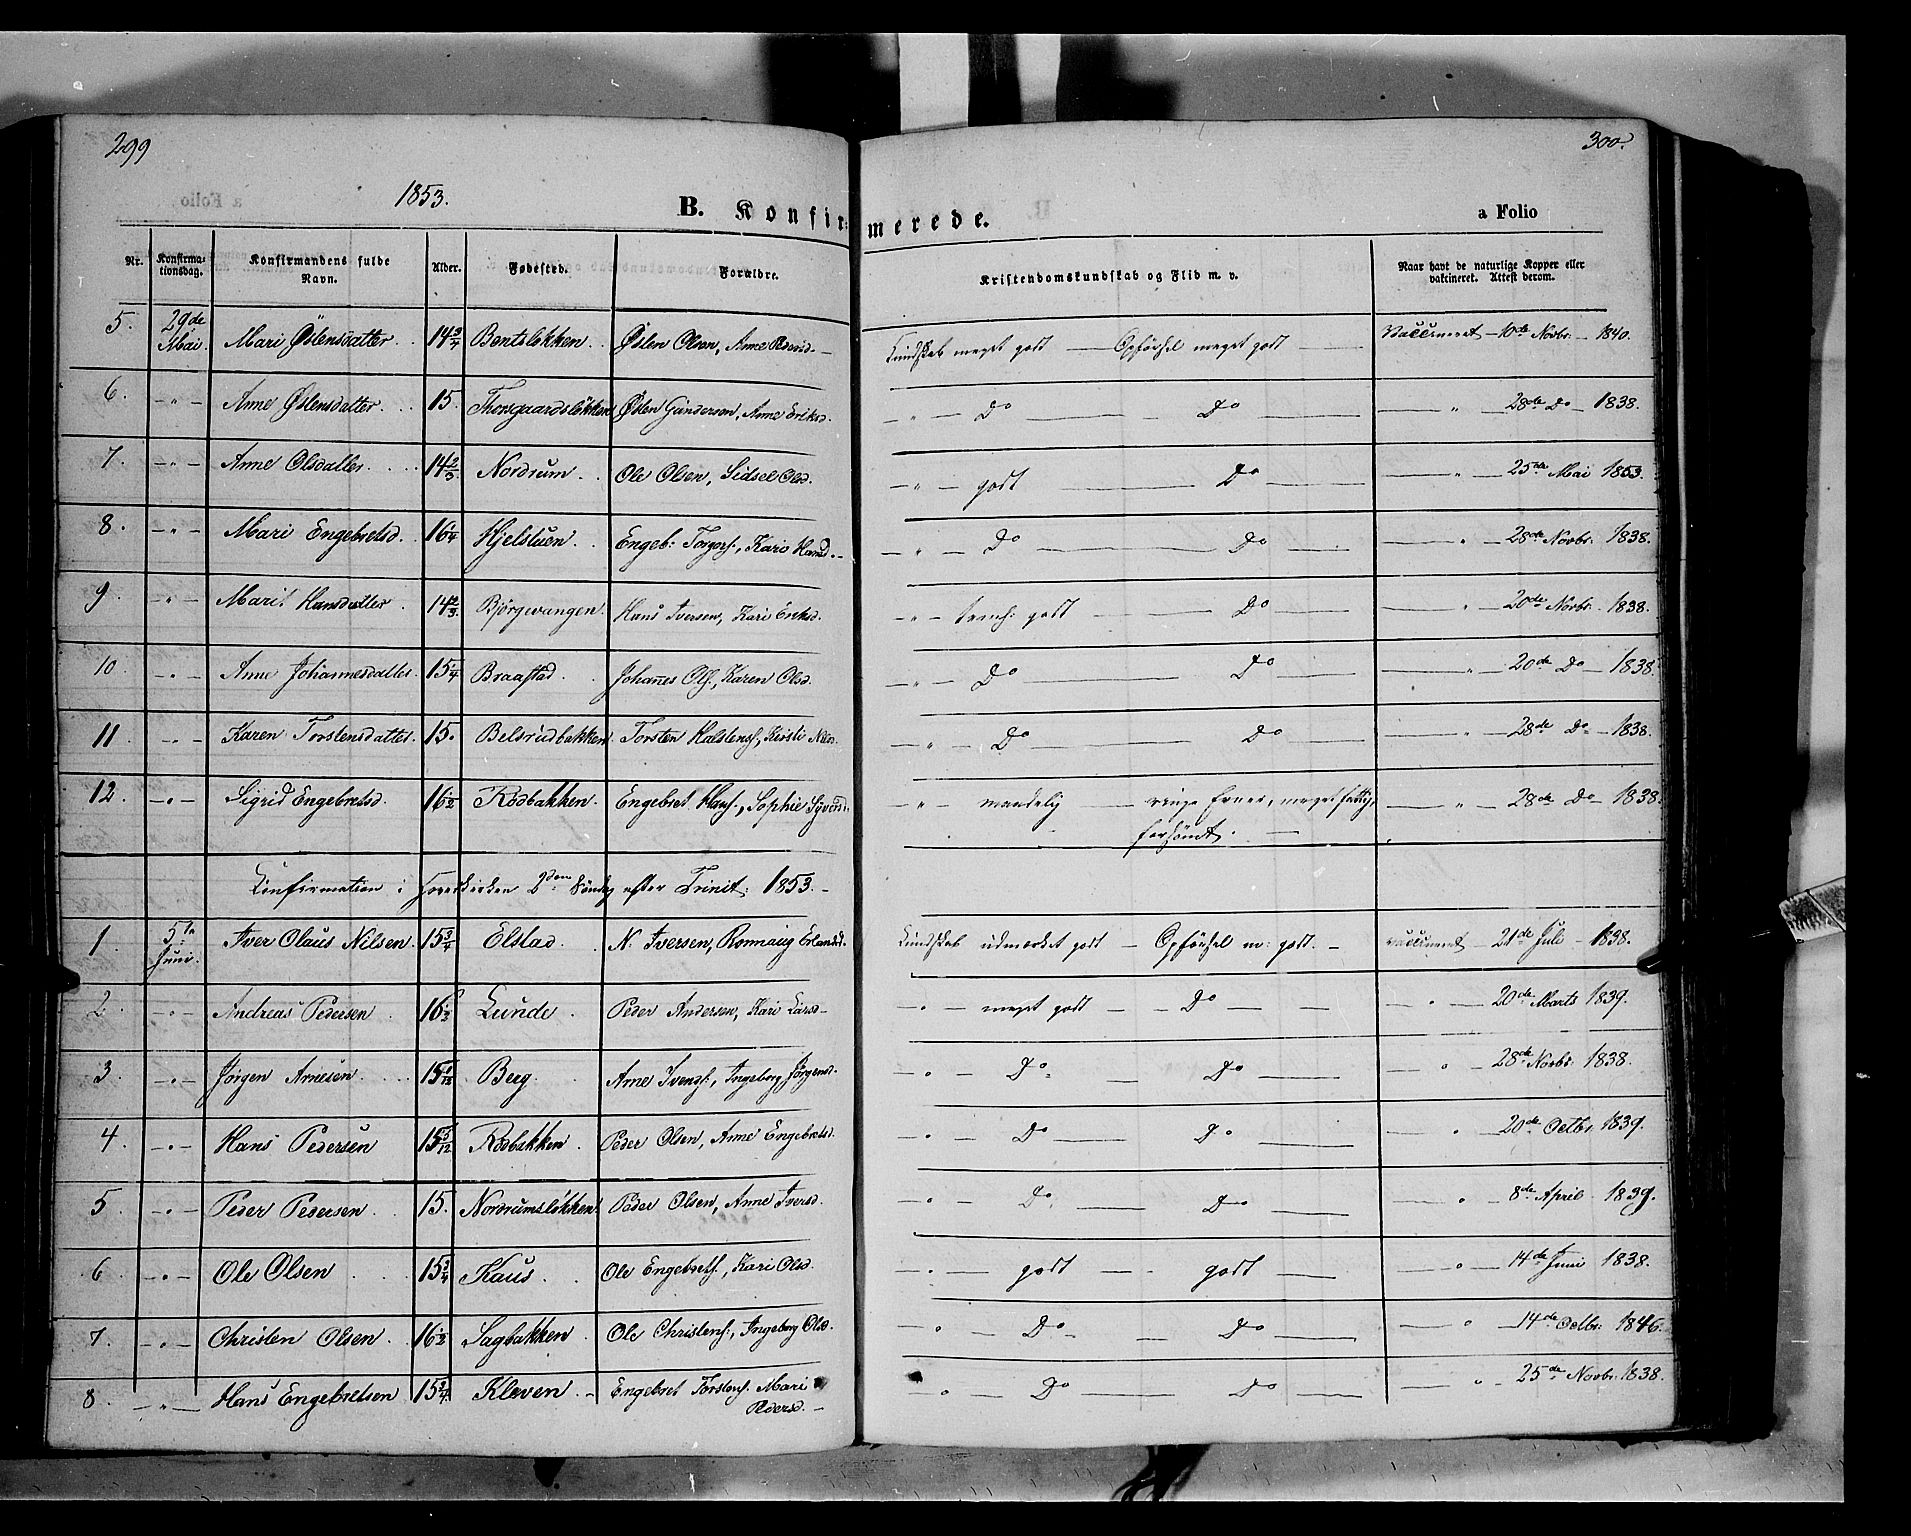 299
300.
1853.
B. Konfir- merede.
a Folio
Nr. Konfirmationsdag. Konfirmandens fulde Navn. Alder. Fødested. Forældre. Kristendomskundskab og Flid m. v. Naar havt de naturlige Kopper eller vaktineret. Attest derom.
5. 29de Mai. Mari Østensdatter 14 3/4 Bentsløkken. Østen Olsen, Anne Kundskab meget godt — Opførsel meget godt — Vaccineret — 10de Novbr. — 1840.
6. " Anne Østensdatter 15. Thorgaardsløkken Østen Gundersen, Anne Eriksd. — " — Do — Do — " — 28de Do — 1838.
7. " Anne Olsdatter 14 2/3 Nordrum. Ole Olsen, Sidsel Olsd. — " — godt — Do — " — 25de Mai 1853.
8. " Mari Engebretsd. 16 1/4 Hjelstuen. Engeb: Torgers:, Kari Hansd. — " — Do — Do — " — 28de Novbr. 1838.
9. " Marit Hansdatter 14 2/3 Bjørgevangen. Hans Iversen, Kari Eriksd. — " — temh: godt — Do — " — 20de Novbr. 1838.
10. " Anne Johannesdatter 15 1/4 Braastad. Johanes Ols:, Karen Olsd. — " — Do — Do — " — 20de Do — 1838.
11 " Karen Torstensdatter 15. Belsrudbakken Torsten Halstens:, Kirsti — " — Do — Do — " — 28de Do — 1838.
12. " Sigrid Engebretsd. 16 1/2 Rødbakken. Engebret Hans:, Sophie — " maadelig — ringe Evner, meget fattig, — " — 28de Do — 1838.
forsømt. —
Confirmation i 2den Søndag efter Trinit: 1853. —
1. 5te Juni. Iver Olaus Nilsen 15 3/4 Elstad. N: Iversen, Ronnaug Erlandsd. Kundskab udmærket godt — Opførsel m: godt. — vaccineret — 21de Juli — 1838.
2. " Andreas Pedersen 16 1/2 Lunde. Peder Andersen, Kari Larsd — " — meget godt — Do — " — 20de Marts 1839.
3. " Jørgen Arnesen 15 Berg. Arne Ivers:, Ingeborg Jørgensd. — " — Do — Do — " 28de Novbr. 1838.
4 " Hans Pedersen 15 Rødbakken. Peder Olsen, Anne Engebretsd. — " — Do — Do — " 20de Octbr. 1839.
5. " Peder Pedersen 15. Nordrumsløkken. Peder Olsen, Anne Iversd. — " — Do — Do — " 8de April — 1839.
6. " Ole Olsen 15 3/4 Haus. Ole Engebrets:, Kari Olsd. — " — godt — godt — " — 14de Juni 1838.
7. " Christen Olsen 16 1/2 Sagbakken Ole Christens:, Ingeborg Olsd. — " — Do — Do — " — 14de Octbr. 1846.
8. " Hans Engebretsen 15 3/4 Kleven — Engebret Torstens: Mari " — Do — Do — " — 25de Novbr. 1838.
Pedersd. —